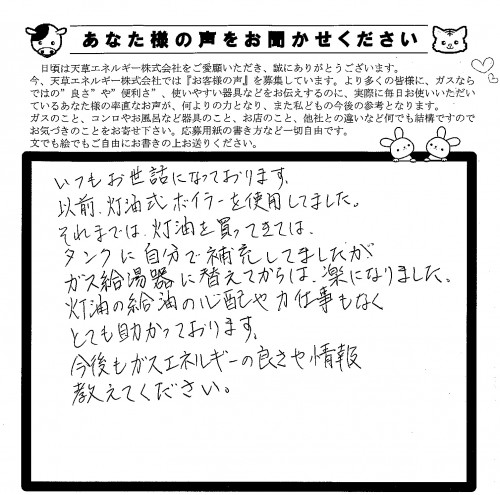 あなた様の声をお聞かせください
日頃は天草エネルギー株式会社をご愛顧いただき、誠にありがとうございます。
今、天草エネルギー株式会社では『お客様の声』を募集しています。より多くの皆様に、ガスなら
ではの”良さ”や”便利さ”、使いやすい器具などをお伝えするのに、実際に毎日お使いいただい
ているあなた様の率直なお声が、何よりの力となり、また私どもの今後の参考となります。
ガスのこと、コンロやお風呂など器具のこと、お店のこと、他社との違いなど何でも結構ですので
お気づきのことをお寄せ下さい。応募用紙の書き方など一切自由です。
文でも絵でもご自由にお書きの上お送りください。
いつもお世話になっております。
以前、灯油式ボイラーを使用してました。
それまでは、灯油を買ってきては、
タンクに自分で補充してましたが
ガス給湯器に替えてからは、楽になりました。
灯油の給油の心配や力仕事もなく
とても助かっております。
今後もガスエネルギーの良さや情報
教えてください。